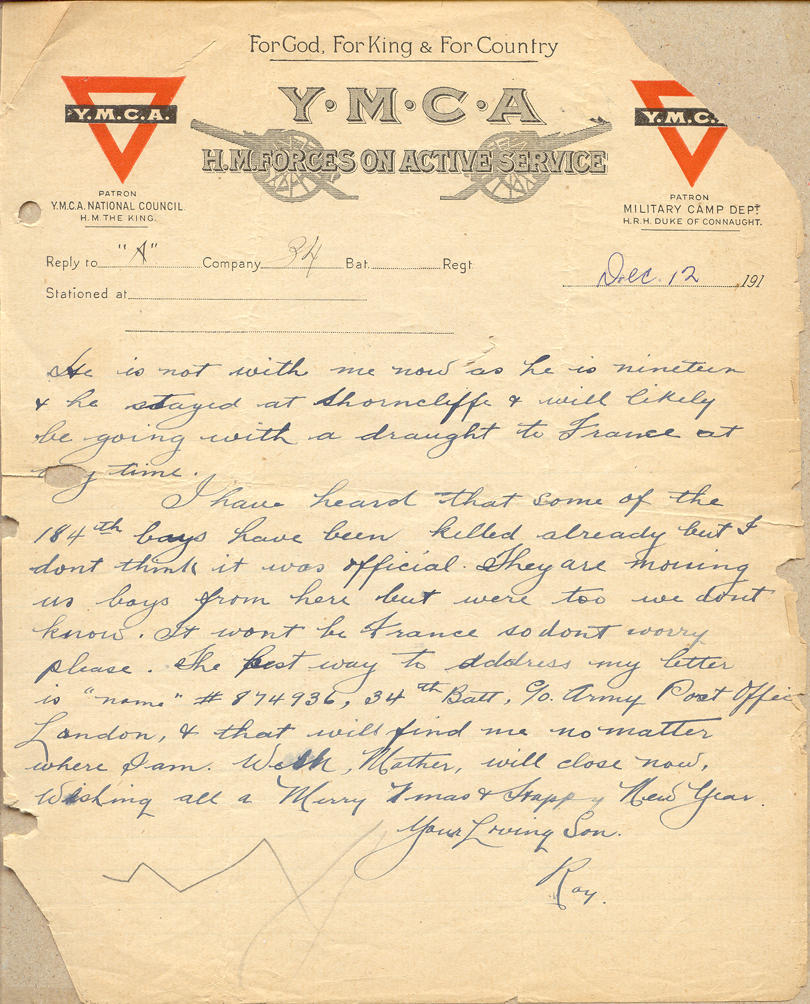 For God, For King & For Country
Y.M.C.A.
Y·M·C·A
Y.M.C.
H.M. FORCES ON ACTIVE SERVICE
PATRON
Y.M.C.A. NATIONAL COUNCIL.
H.M. THE KING.
PATRON
MILITARY CAMP DEPT.
H.R.H. DUKE OF CONNAUGHT.
Reply to "A" Company 34 Bat. Regt
Dec. 12 191
Stationed at
He is not with me now as he is nineteen
& he stayed at Shorncliffe & will likely
be going with a draught to France at
y time.
I have heard that some of the
184th boys have been killed already but I
dont think it was official. They are moving
us boys from here but were too we dont
know. It wont be France so dont worry
please. The best way to address my letter
is "name" # 874936, 34th Batt, C/o. Army Post Offic
London, & that will find me no matter
where I am. Well, Mother, will close now,
Wishing all a Merry Xmas & Happy New Year.
Your Loving Son.
Roy.